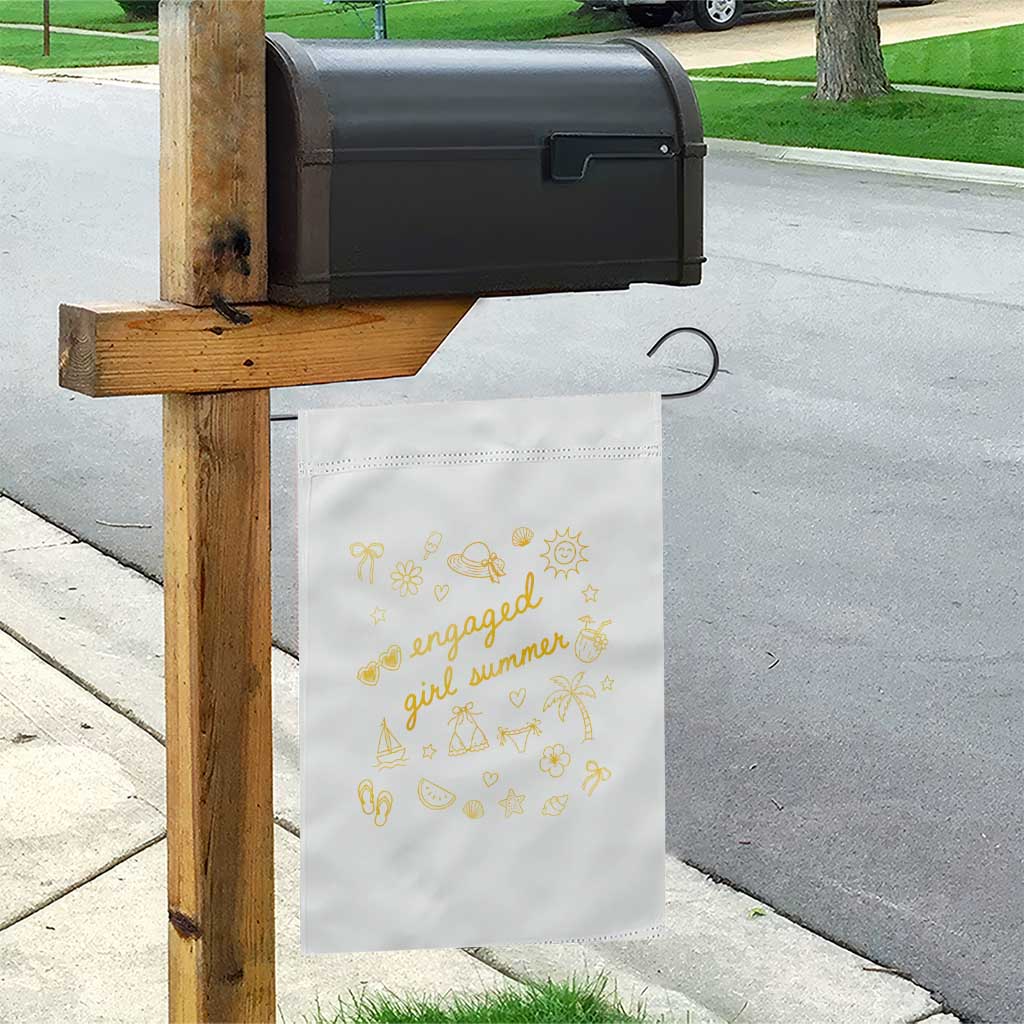 engaged
girl summer